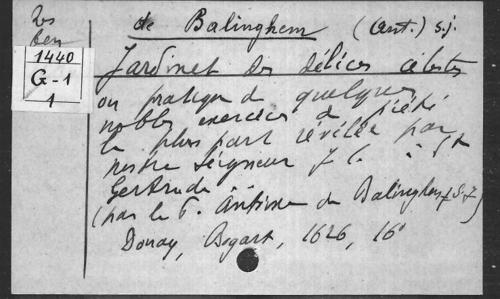 de Balinghem (Ant.) S.j.
1440
G-1
1
Jardinet des délices célestes
ou pratique de quelques
nobles exercices de piété
la plus part révélée par
nostre Seigneur J C. à Ste
Gertrude
(par le P. Antoine de Balinghem, S.J)
Douay, Bogart, 1626, 16°